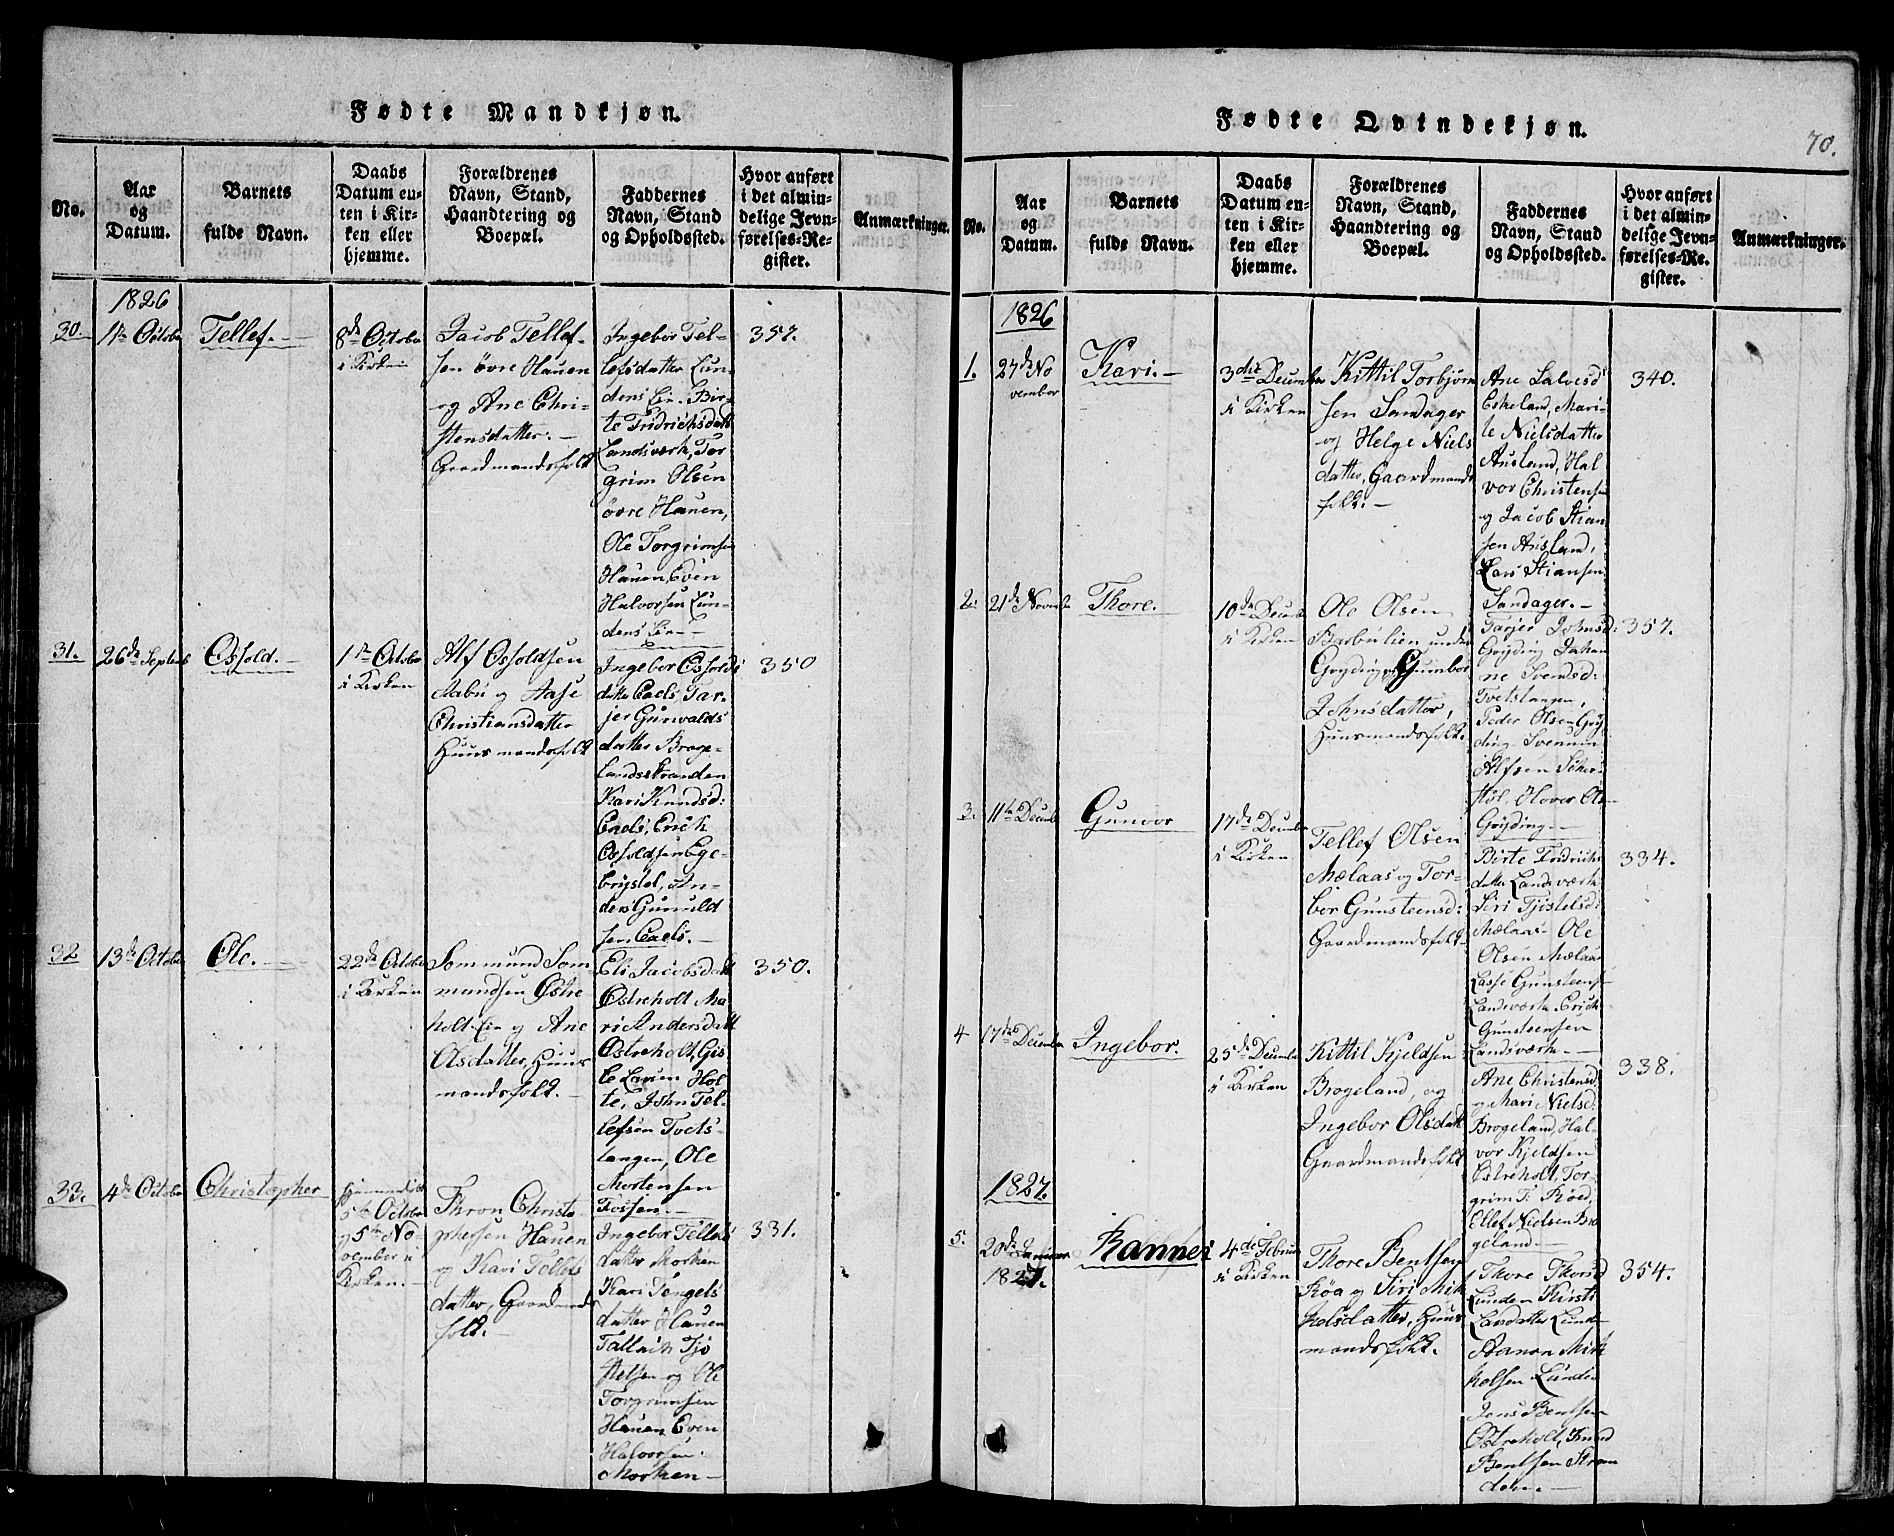 Fødte Mandkjøn.
No.
Aar
og
Datum.
Barnets
fulde Navn.
Daabs
Datum en-
ten i Kir-
ken eller
hjemme.
Forældrenes
Navn, Stand,
Haandtering og
Boepæl.
Faddernes
Navn, Stand
og Opholdssted.
Hvor anført
i det almin-
delige Jevn-
førelses-Re-
gister.
Anmærkninger.
1826
30.
1te Octobr
Tellef.
8de Octobr
i Kirken
Jacob Tellef-
sen övre Hauen
og Ane Chri-
stensdatter.
Gaardmandsfolk
Ingebor Tel-
lefsdatter Lun-
dens Eie. Bir-
te Fridrichsdatt
Landsverk, Tor-
grim Olsen
övre Hauen,
Ole Torgrimsen
Hauen, Even
Halvorsen Lun-
dens Eie
357.
31.
26de Septemb
Osfold.
1te Octobr
i Kirken
Alf Osfoldsen
Aabu og Aase
Christiansdatter
Huusmandsfolk
Ingebor Osfolds
datter Eaels, Tar-
jer Gunvalds
datter Broge-
landsstranden
Kari Knudsd:
Enels, Erick
Osfoldsen Ege-
brystel, An-
ders Gunuld
sen Eaels.
350
32
13de Octobr
Ole.
22de Octobr
i Kirken
Sommund Som-
mundsen Östre
holt Eie og Ane
Olsdatter, Huus
mandsfolk.
Eli Jacobsdatt
Östreholt Ma-
ri Andersdatt
Östreholt, Gis-
le Larsen Hol-
te, John Tel-
lefsen Tvets-
langen, Ole
Mortensen
Fossen.
350.
33.
4de Octobr
Christopher
5te Octobr
og 5te No-
vember i
Kirken.
Thron Christo-
phersen Hauen
og Kari Tellefs
datter, Gaardmands
folk.
Ingebor Tellefs
datter Morken
Kari Tengels
datter Hauen
Tallak Tjö
stelsen og Ole
Torgrimsen
Hauen Even
Halvorsen
Morken
331.
Fødte Qvindekjøn.
70.
No.
Aar
og
Datum.
Barnets
fulde Navn.
Daabs
Datum en-
ten i Kir-
ken eller
hjemme.
Forældrenes
Navn, Stand,
Haandtering og
Boepæl.
Faddernes
Navn, Stand
og Opholdssted.
Hvor anført
i det almin-
delige Jevn-
førelses-Re-
gister.
Anmærkninger.
1826
1.
27de No
vember
Kari.
3die Decembr
i Kirken
Kittil Torbjörn
sen Sandager
og Helge Niels
datter, Gaardmands
folk.
Ane Salvesd
Eskeland, Mari-
te Nielsdatter
Ausland, Hal
vor Christensen
og Jacob Stian
sen Ausland,
Lars Stiansen
Sandager.
340.
2.
21de Novembr
Thore.
10de Decembr
i Kirken
Ole Olsen
Barbulien under
Gryding og Gumbor
Johnsdatter,
Huusmandsfolk.
Tarjer Johnsd:
Gryding Johan
ne Svendsd:
Tvetslangen,
Peder Olsen Gry
ding Svennin
Alfsen
Hover Ols
Gryding
357.
3.
11te Decembr
Gunvor
17de Decembr
i Kirken
Tellef Olsen
Mælaas og Tor-
bor Gunsteensd:
Gaardmandsfolk
Birte Fridrichs
datter Landsværk
Siri Tjöstelsd:
Mælaas Ole
Olsen Mælaas
Lasse Gunsteens
Landsværk Erick
Gunsteensen
Landsværk
334.
4
17de Decembr
Ingebor.
25de Decembr
i Kirken
Kittil Kjeldsen
Brogeland, og
Ingebor Olsdatt
Gaardmandsfolk
Ane Christensd
og Mari Nielsd
Brogeland, Hal-
vor Kjeldsen
Östreholt, Tor-
grim T: Röed,
Ellef Nielsen Bro
geland.
338.
1827.
5.
20de Januar
1827.
Rannei
4de Februar
i Kirken
Thore Bentsen
Röa og Siri Mik
kelsdatter, Huus
mandsfolk.
Thore Thorsd
Lunden Kirsti
Larsdatter Lunde
Aanon Mik
kelsen Lunde
Jens Bentsen
Östreholt, Knud
Bentsen Stran
den.
354.